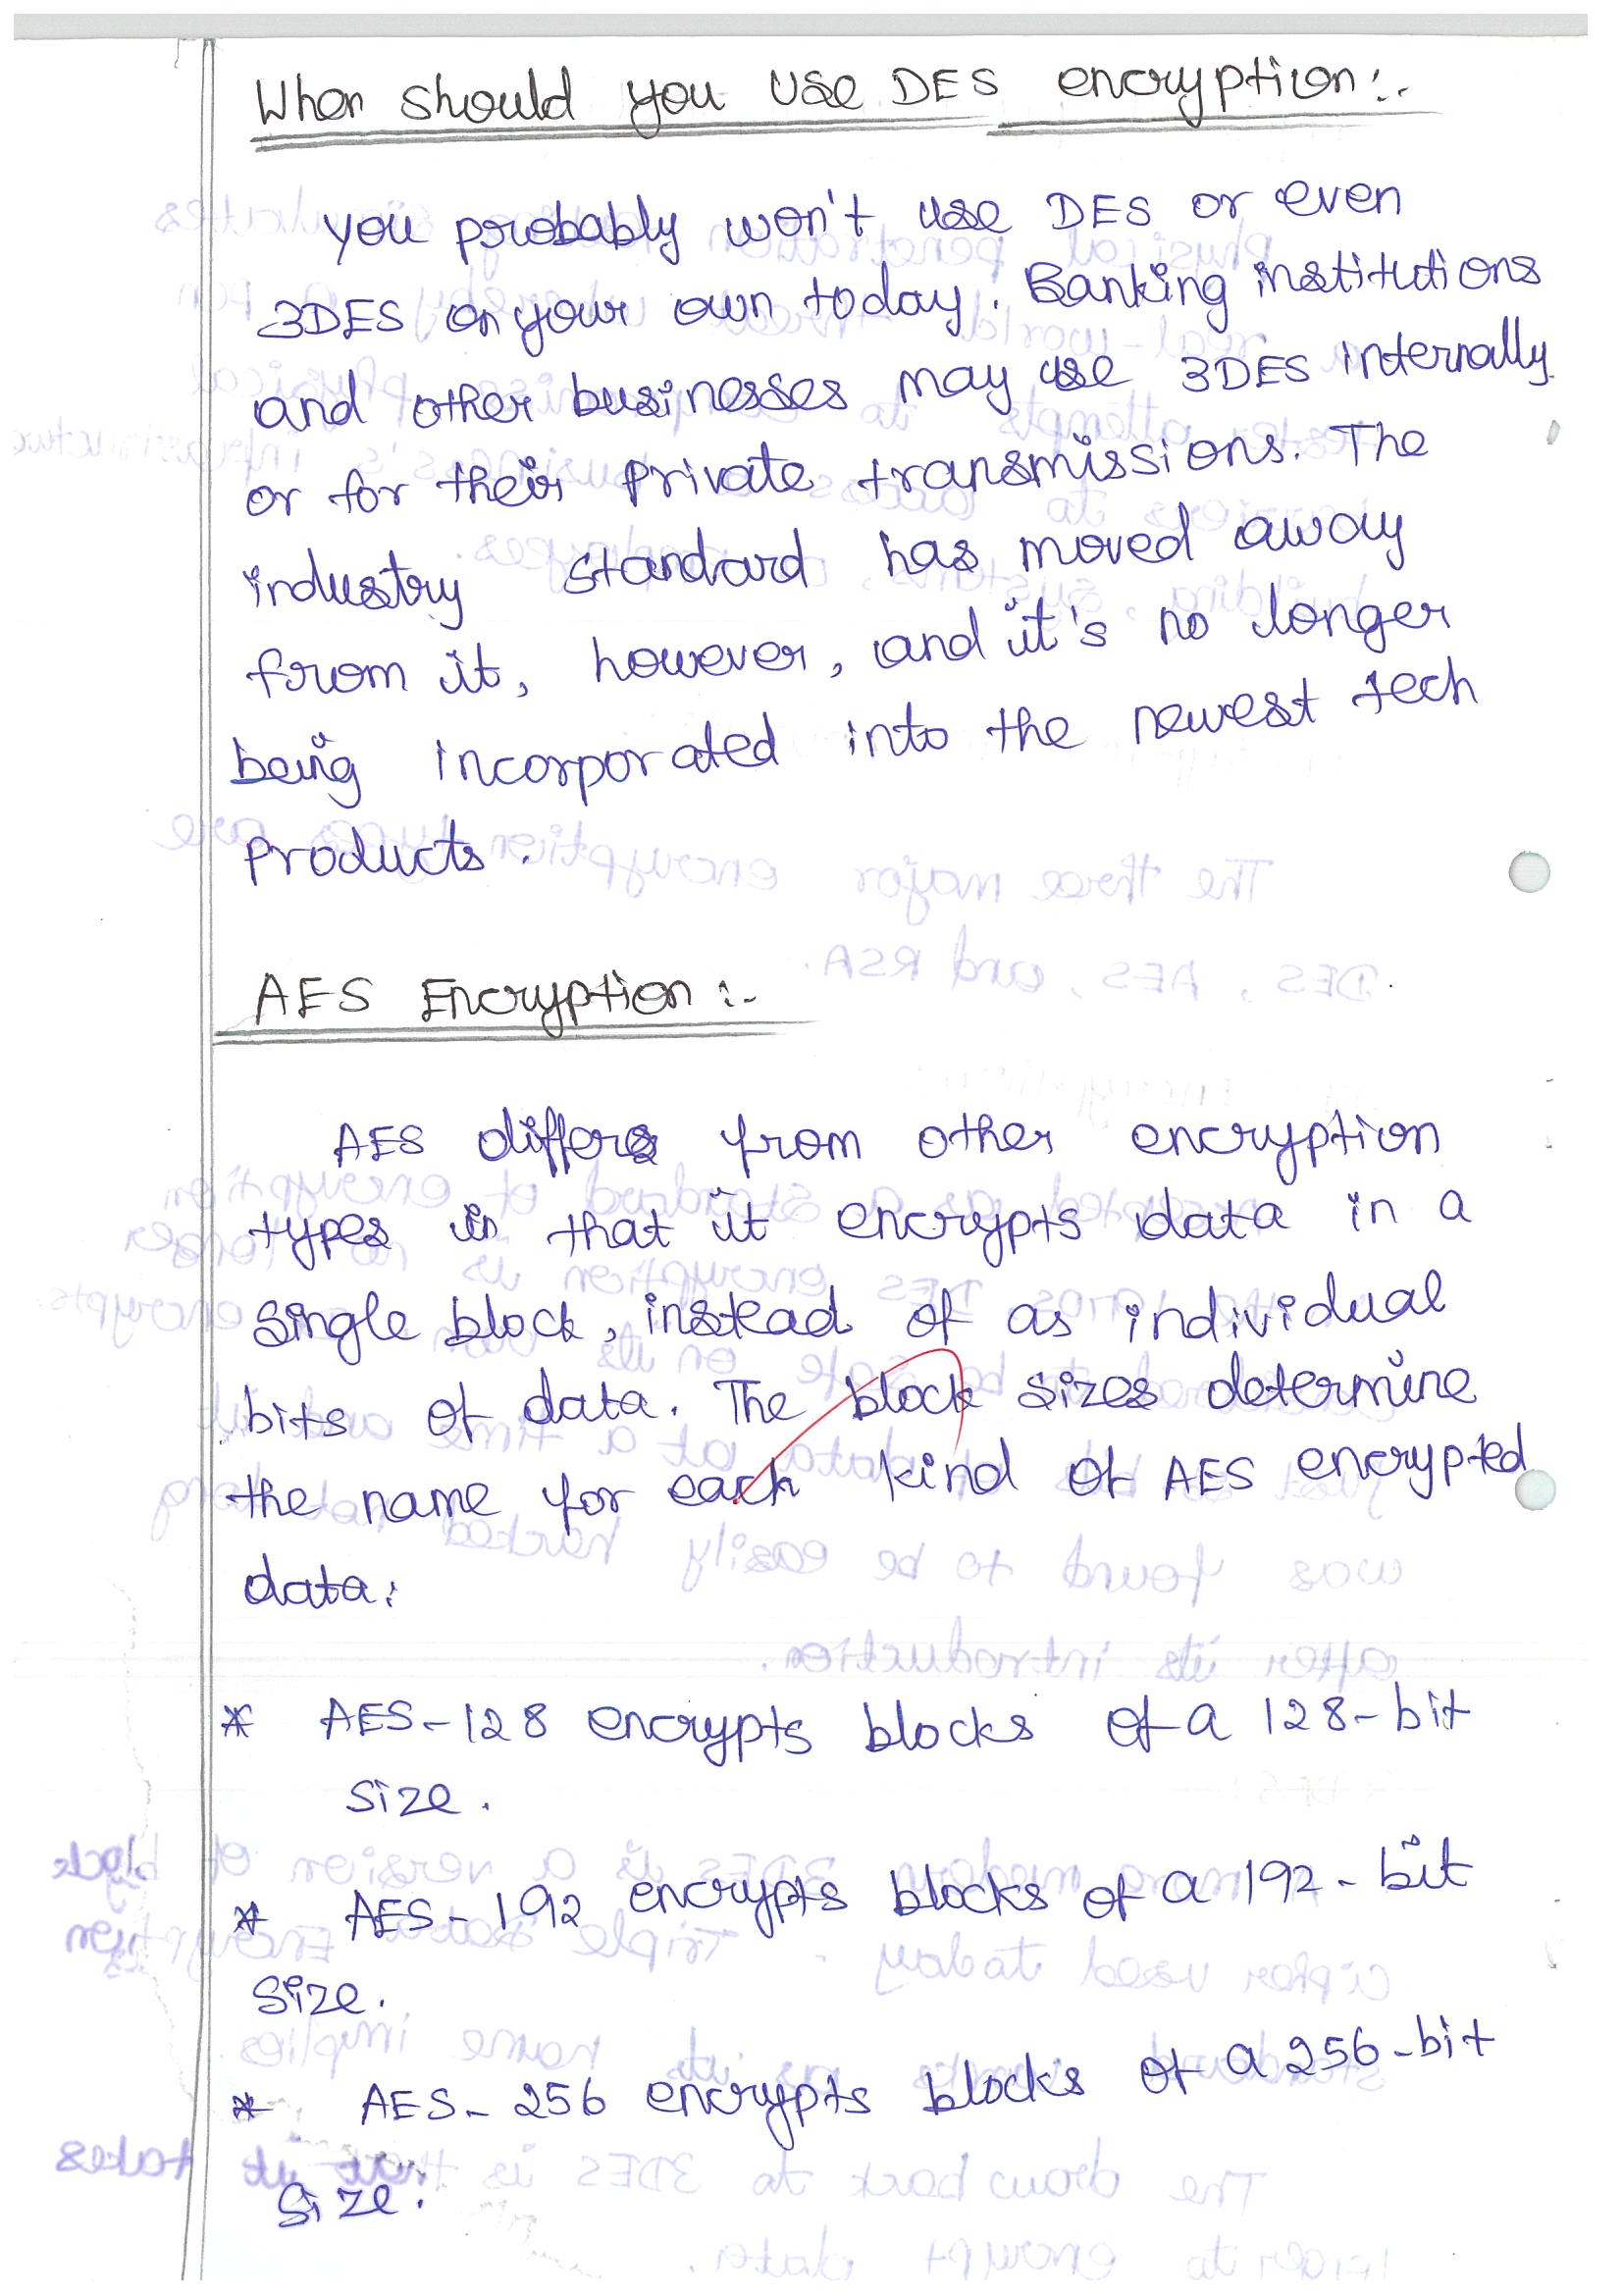 When should you use DES encryption:-
you probably won't use DES or even
3DES on your own today. Banking institutions
and other businesses may use 3DES internally
or for their private transmissions. The
industry standard has moved away
from it, however, and it's no longer
being incorporated into the newest tech
products.
AES Encryption :-
AES differs from other encryption
types in that it encrypts data in a
single block, instead of as individual
bits of data. The block sizes determine
the name for each kind of AES encrypted
data:
* AES-128 encrypts blocks of a 128-bit
size.
* AES-192 encrypts blocks of a 192-bit
size.
* AES-256 encrypts blocks of a 256-bit
size.